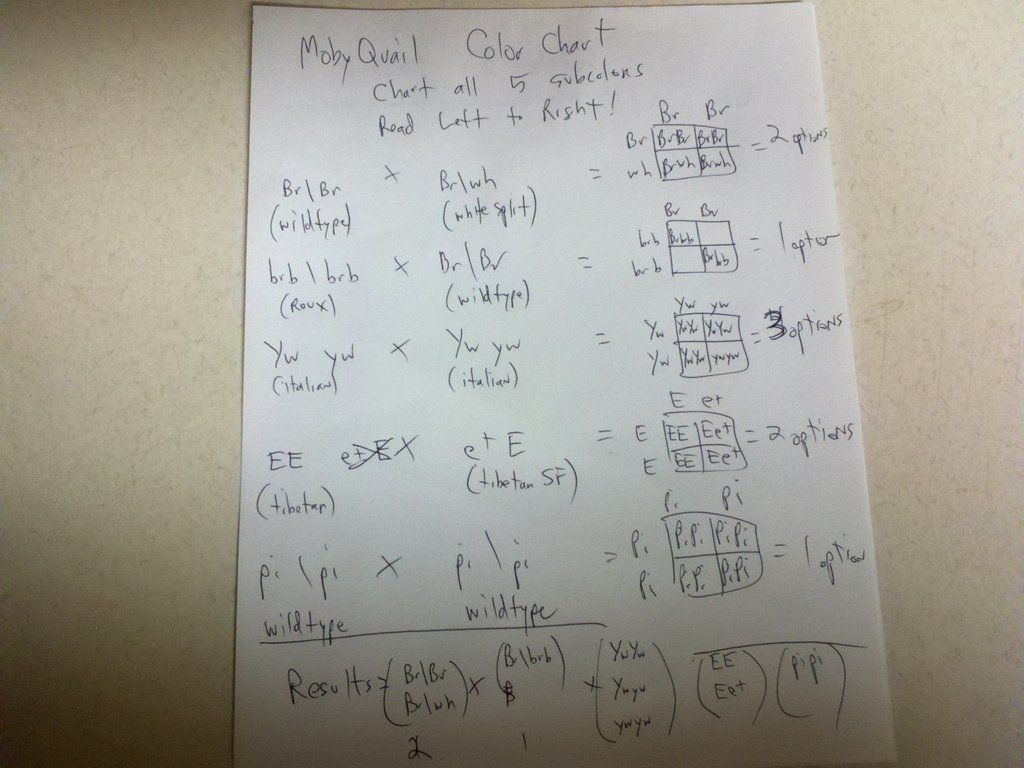 Moby Quail Color Chart
Chart all 5 subcolors
Read Left to Right!
Br Br
Br\Br × Br\wh = Br BrBr BrBr = 2 options
wh Brwh Brwh
(wildtype) (white split)
Br Br
brb\brb × Br\Br = brb Brbb = 1 option
brb Brbb
(Roux) (wildtype)
Yw yw
Yw yw × Yw yw = Yw YwYw YwYw = 3 options
Yw YwYw ywyw
(italian) (italian)
E e+
EE X e+ E = E EE Ee+ = 2 options
E EE Ee+
(tibetan) (tibetan SF)
pi pi
pi\pi × pi\pi = pi pipi pipi = 1 option
pi pipi pipi
wildtype wildtype
Results = (Br\Br) × (Br\brb) × (YwYw) (EE) (pipi)
Br\wh Ywyw Ee+
ywyw
2 1